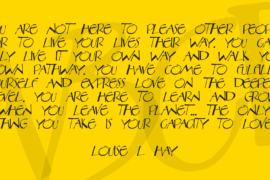 U ARE NOT HERE TO PLEASE OTHER PEOP
R TO LIVE YOUR LIVES THEIR WAY. YOU CA
LY LIVE IT YOUR OWN WAY AND WALK YO
OWN PATHWAY. YOU HAVE COME TO FULFILL
URSELF AND EXPRESS LOVE ON THE DEEPES
EVEL. YOU ARE HERE TO LEARN AND GROW
WHEN YOU LEAVE THE PLANET... THE ONLY
HING YOU TAKE IS YOUR CAPACITY TO LOVE
LOUISE L HAY